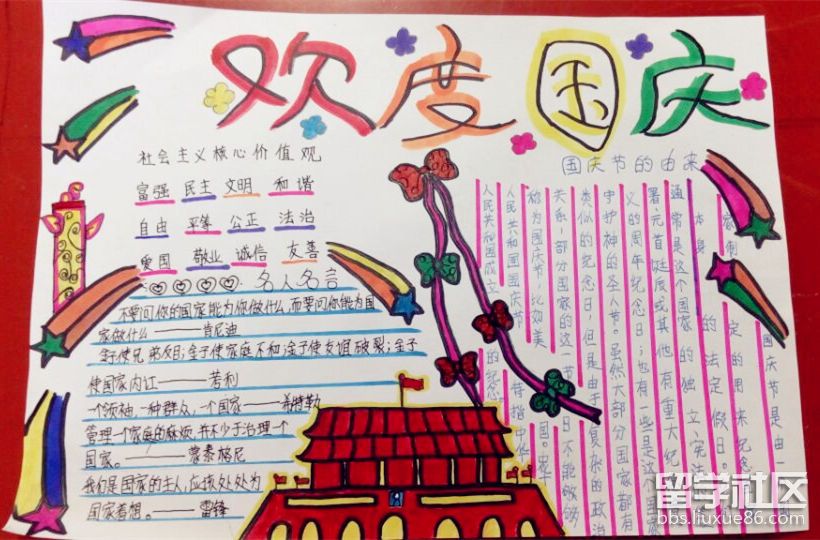 欢度国庆
社会主义核心价值观
富强 民主 文明 和谐
自由 平等 公正 法治
爱国 敬业 诚信 友善
名人名言
不要问你的国家能为你做什么,而要问你能为国
家做什么——肯尼迪
金子使兄弟反目;金子使家庭不和;金子使友谊破裂;金子
使国家内讧——考利
一个领袖,一种群众,一个国家——希特勒
管理一个家庭的麻烦,并不少于治理一个
国家。——蒙泰格尼
我们是国家的主人,应该处处为
国家着想。——雷锋
国庆节的由来
国庆节是由
家制定的用来纪念
本身的法定假日。
通常是这个国家的独立、宪法
署、元首诞辰或其他有重大纪
义的周年纪念日;也有一些是这个国家
守护神的圣人节。虽然大部分国家都有
类似的纪念日,但是由于复杂的政治
关系,一部分国家的这一节日不能够
称为国庆节,比如美国。
人民共和国国庆节特指中华
人民共和国成立的纪念
留学社区
bbs.liuxue86.com